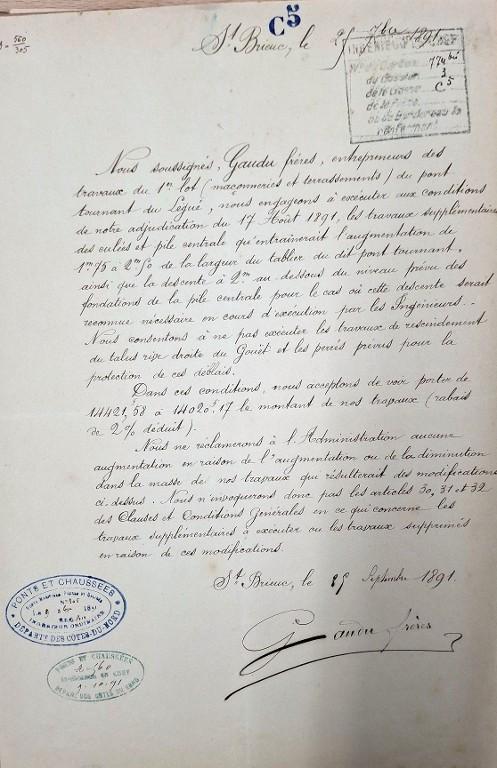 C5
560
305
St Brieuc, le 25 7bre 1891
INGÉNIEUR EN CHEF
774 bis
du Dossier 3
de la Liasse C5
de la Pièce
ou du Bordereau la
renfermant
Nous soussignés, Gaudu frères, entrepreneurs des
travaux du 1er lot (maçonneries et terrassements) du pont
tournant du Légué, nous engageons à exécuter aux conditions
de notre adjudication du 17 Août 1891, les travaux supplémentaires
des culées et pile centrale qu'entraînerait l'augmentation de
1m75 à 2m50 de la largeur du tablier du dit pont tournant,
ainsi que la descente à 2m au-dessous du niveau prévu des
fondations de la pile centrale pour le cas où cette descente serait
reconnue nécessaire en cours d'exécution par les Ingénieurs.
Nous consentons à ne pas exécuter les travaux de rescindement
du talus rive droite du Gouët et les perrés prévus pour la
protection de ces déblais.
Dans ces conditions, nous acceptons de voir porter de
14421f,58 à 14020f,17 le montant de nos travaux (rabais
de 2% déduit).
Nous ne réclamerons à l'Administration aucune
augmentation en raison de l'augmentation ou de la diminution
dans la masse de nos travaux qui résulterait des modifications
ci-dessus. Nous n'invoquerons donc pas les articles 30, 31 et 32
des Clauses et Conditions Générales en ce qui concerne les
travaux supplémentaires à exécuter ou les travaux supprimés
en raison de ces modifications.
St Brieuc, le 25 Septembre 1891.
Gaudu frères
PONTS ET CHAUSSÉES
INGÉNIEUR ORDINAIRE
DÉPARTt DES CÔTES-DU-NORD
PONTS ET CHAUSSÉES
2-560
INGÉNIEUR EN CHEF
DÉPARt DES CÔTES DU NORD